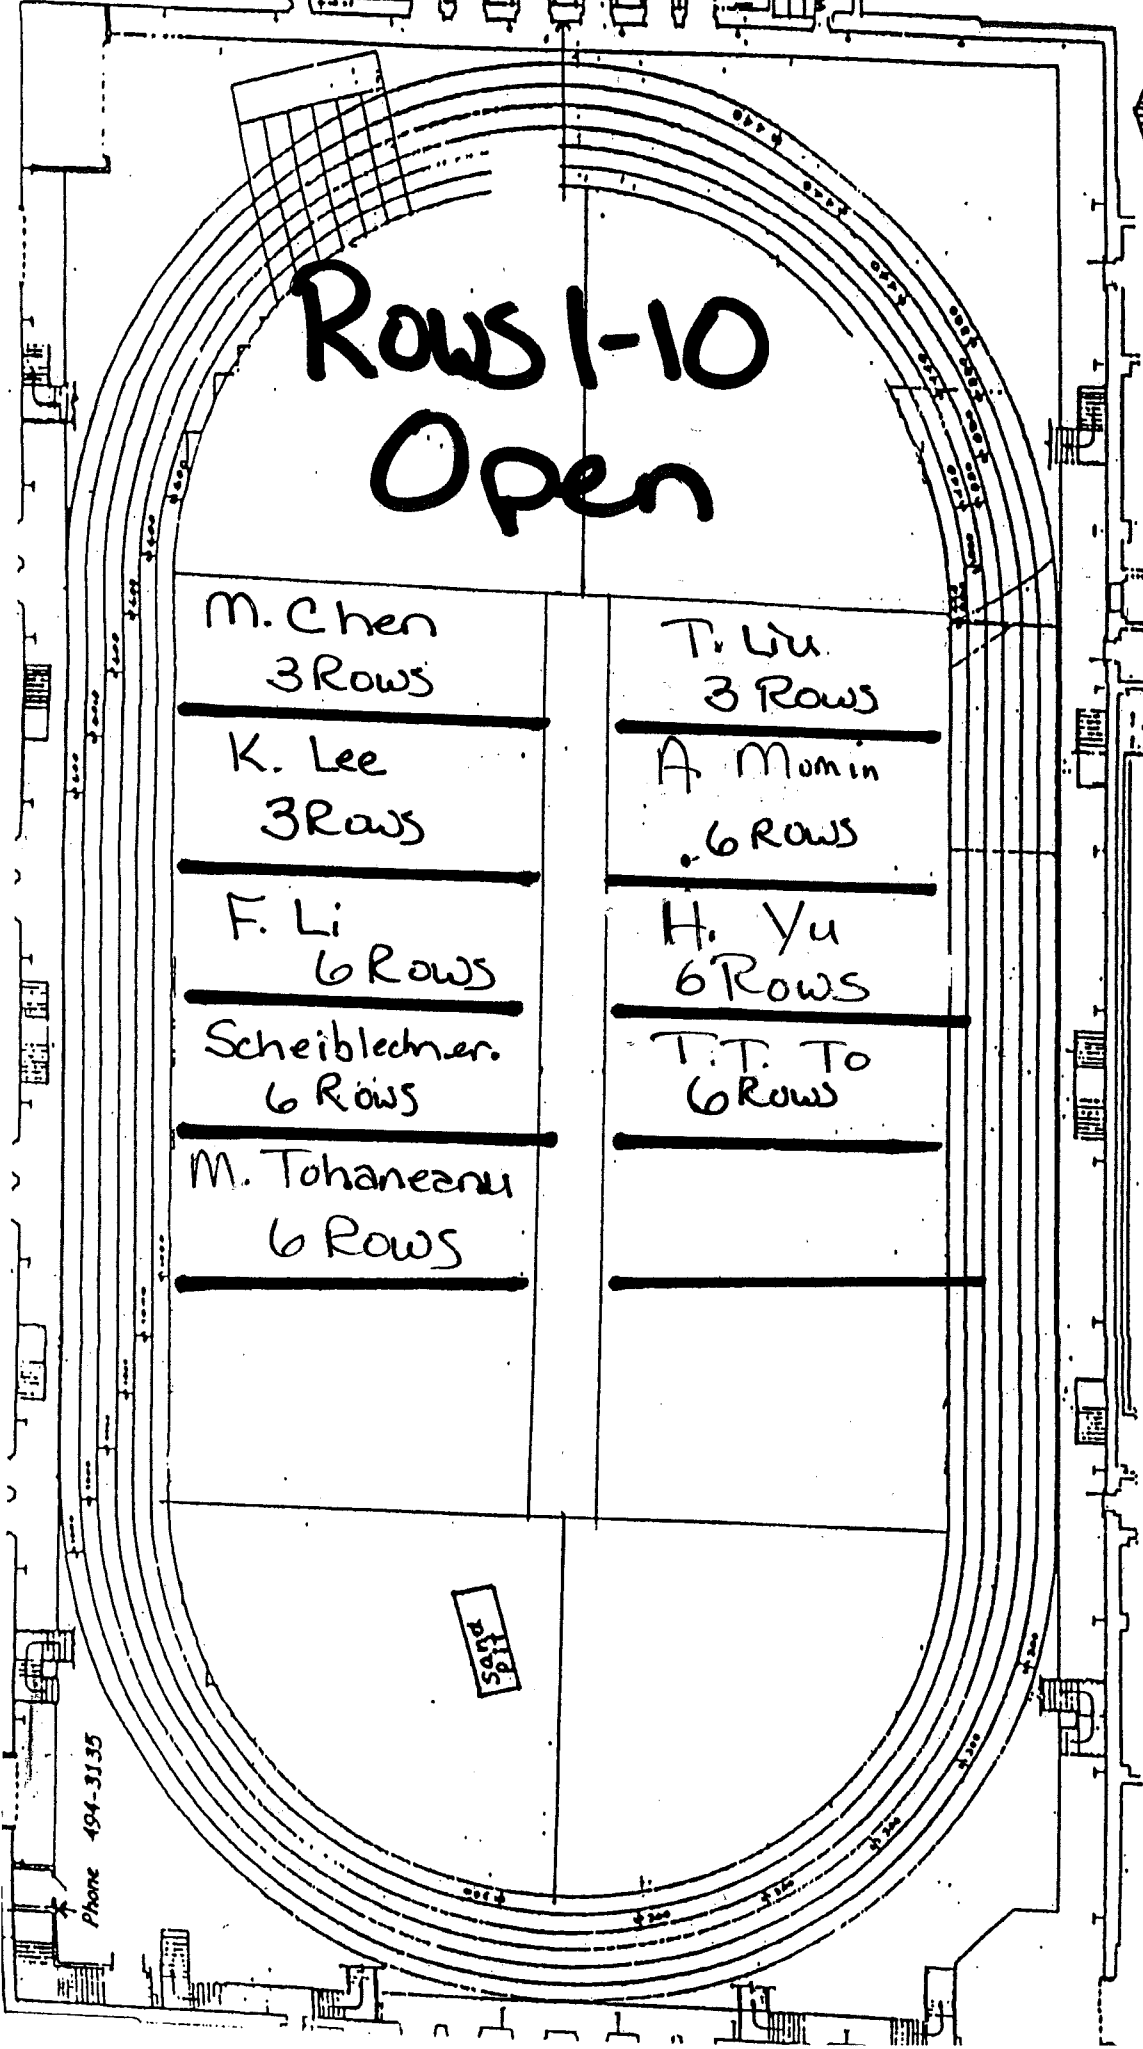 Rows 1-10
Open
M. Chen
3 Rows
K. Lee
3 Rows
F. Li
6 Rows
Scheiblechner.
6 Rows
M. Tohaneanu
6 Rows
T. Liu
3 Rows
A. Momin
6 Rows
H. Yu
6 Rows
T.T. To
6 Rows
Sand
pit
Phone 494-3135